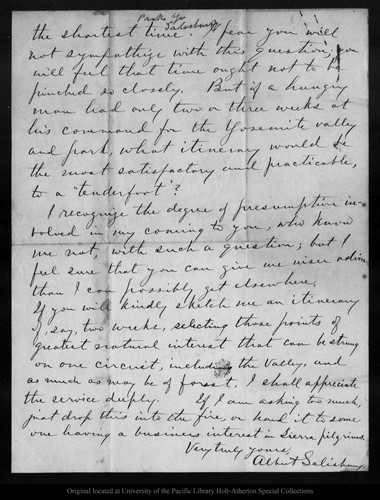 Parks Yo
Salesbury
the shortest time. I fear you will
not sympathize with this question; you
will feel that time ought not to be
pinched so closely. But if a hungry
man had only two or three weeks at
his command for the Yosemite valley
and park, what itinerary would be
the most satisfactory and practicable,
to a "tenderfoot"?
I recognize the degree of presumption in-
volved in my coming to you, who know
me not, with such a question; but I
feel sure that you can give me wiser advice
than I can possibly get elsewhere.
If you will kindly sketch me an itinerary
of, say, two weeks, selecting those points of
greatest natural interest that can be strung
on one circuit, including the Valley, and
as much as may be of forest, I shall appreciate
the service deeply. If I am asking too much,
just drop this into the fire, or hand it to some
one having a business interest in Sierra pilgrims.
Very truly yours,
Albert Salisbury.
Original located at University of the Pacific Library Holt-Atherton Special Collections